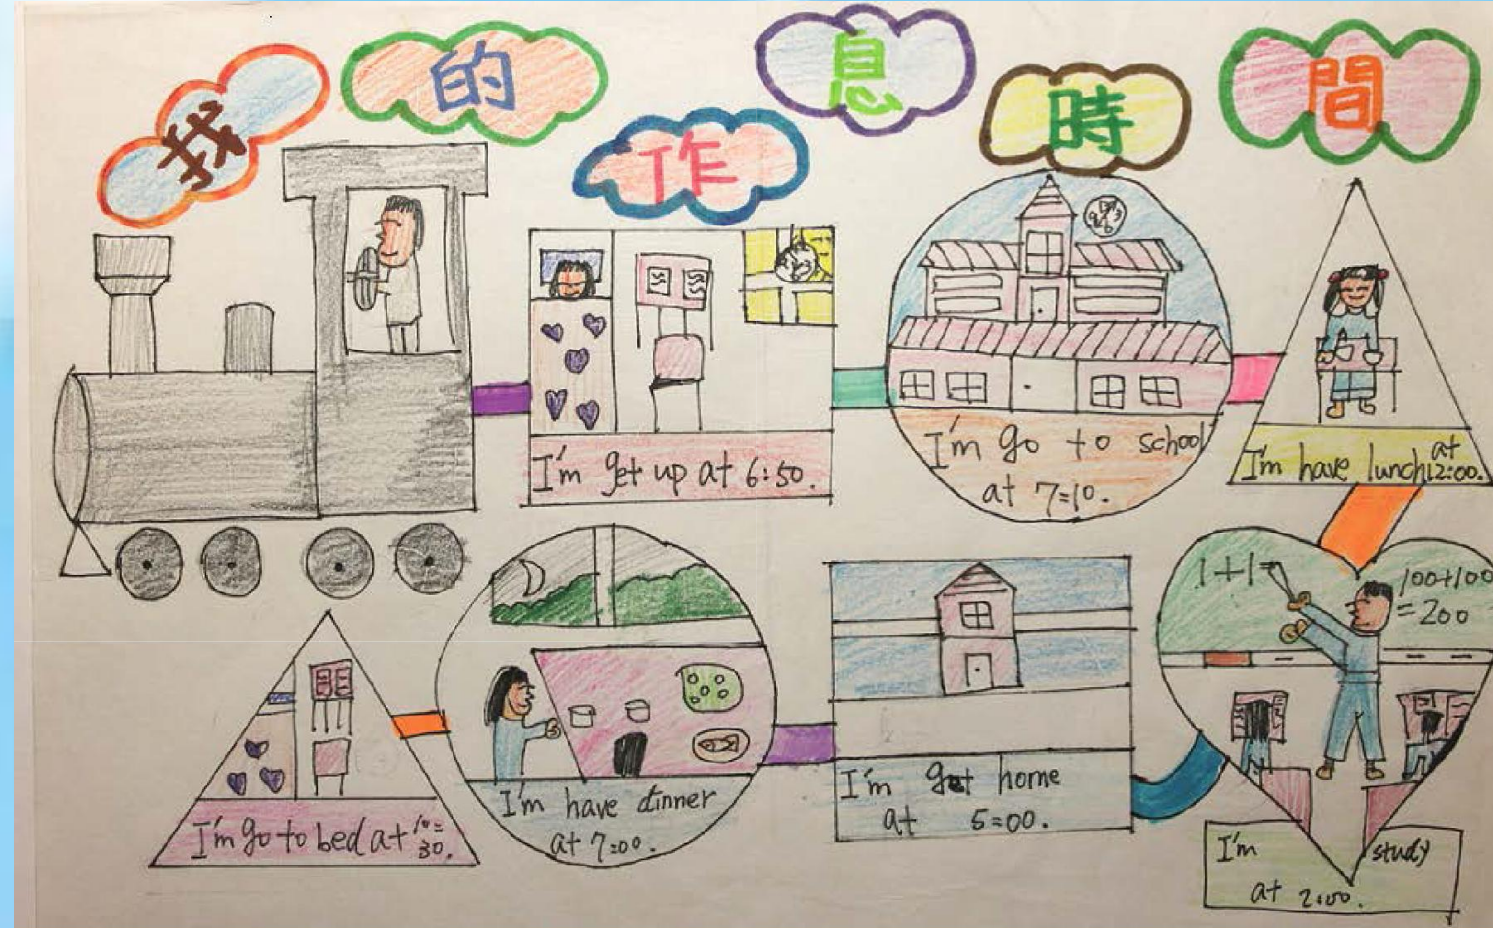 我的作息時間
I'm get up at 6:50.
I'm go to school
at 7:10.
I'm have lunch at
12:00.
1+1=
100+100
=200
I'm study
at 2:00.
I'm get home
at 5:00.
I'm have dinner
at 7:00.
I'm go to bed at 10:
30.